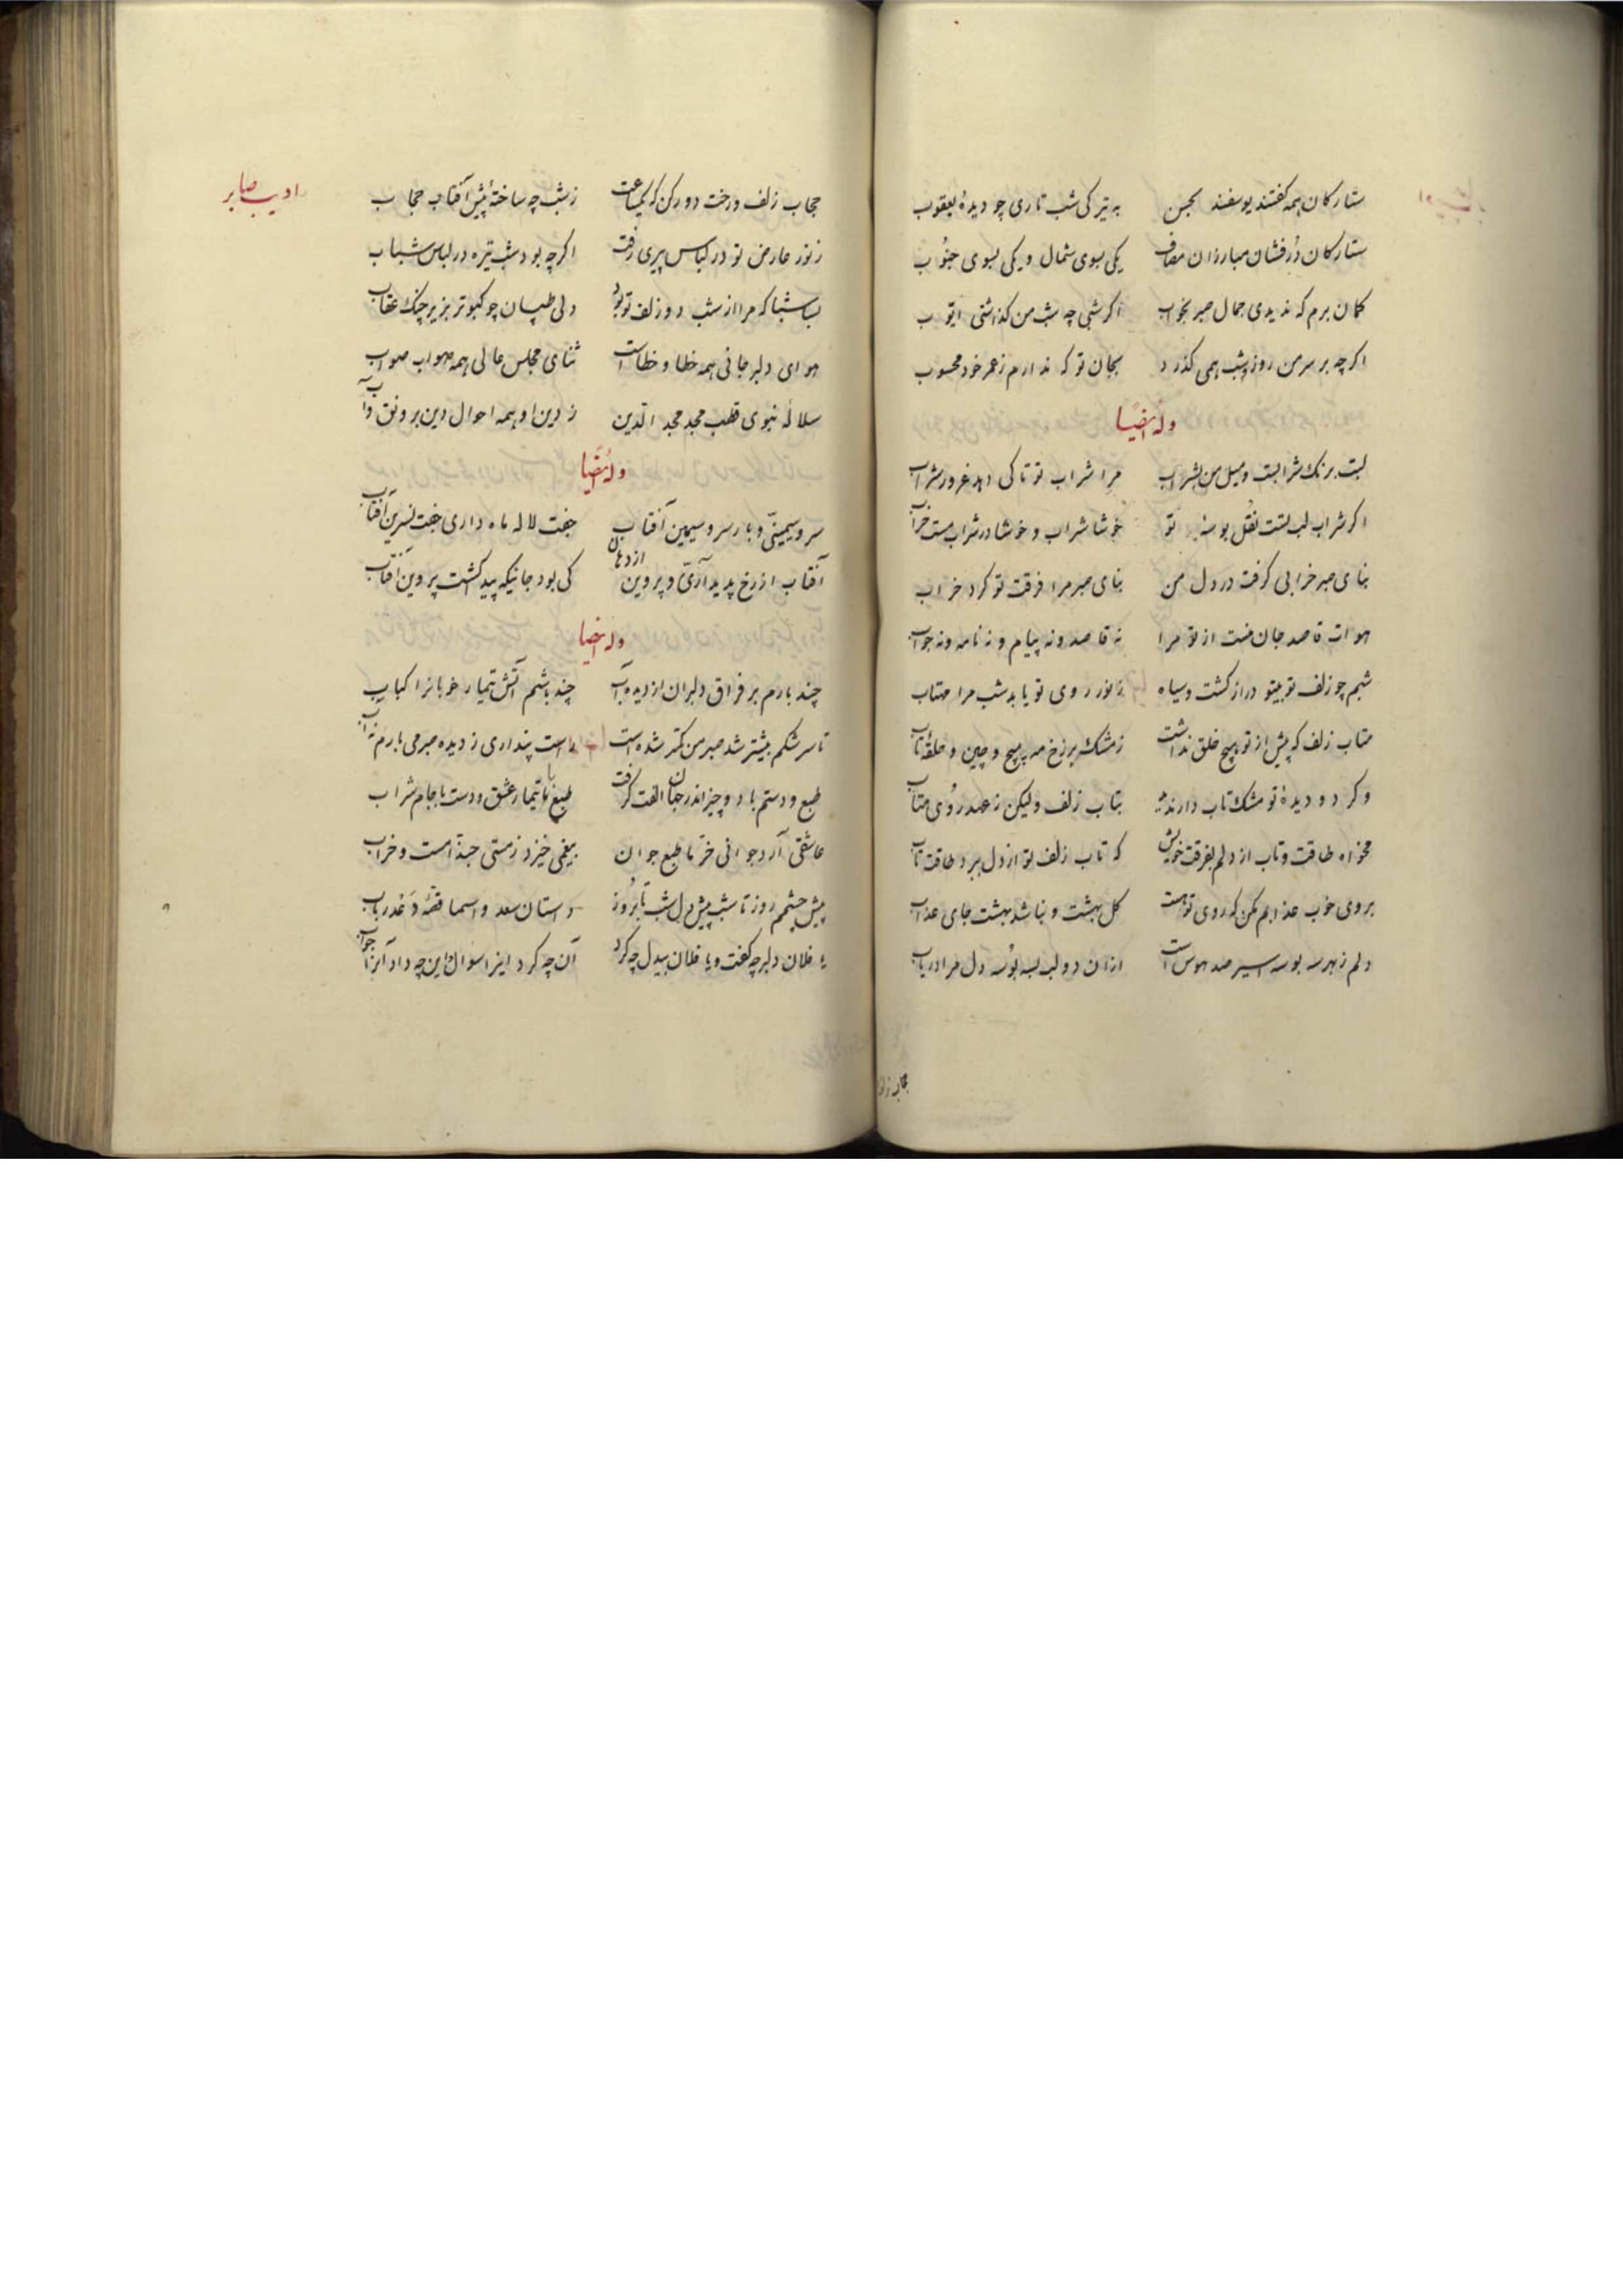 ستارکان همه کفتند یوسفند بحسن
به تیرکی شب تاری چو دیدهٔ یعقوب
ستارکان درفشان مبارزان مصاف
یکی بسوی شمال و یکی بسوی جنوب
کمان برم که ندیدی جمال صبر بخواب
اکر شبی چه شب من کذاشتی ایوب
اکرچه بر سر من روز و شب همی کذرد
بجان تو که ندارم ز عمر خود محسوب
وله ایضا
لبت برنک شرابست و میل من بشراب
مرا شراب تو تا کی دهد غرور شراب
اکر شراب لب لتست نقل بوسه تو
خوشا شراب و خوشا در شراب مست خراب
بنای صبر خرابی کرفت در دل من
بنای صبر مرا فرقت تو کرد خراب
هوات قاصد جان منست از تو مرا
نه قاصد و نه پیام و نه نامه و نه جواب
شبم چو زلف تو بیتو دراز کشت و سیاه
ز نور روی تو یابد شب مرا مهتاب
متاب زلف که پیش از تو هیچ خلق نداشت
ز مشک بر رخ مه پیچ و چین و حلقهٔ تاب
وکر دو دیدهٔ تو مشک تاب دارند
بتاب زلف ولیکن ز عهد روی متاب
مخواه طاقت و تاب از دلم بفرقت خویش
که تاب زلف تو از دل ببرد طاقت تاب
بروی خوب عذابم مکن که روی تو هست
کل بهشت و نباشد بهشت جای عذاب
دلم ز بهر سه بوسه اسیر صد هوس است
ازان دو لب بسه بوسه دل مرا دریاب
حجاب زلف
ادیب صابر
حجاب زلف درخت دور کن که یکساعت
ز شب چه ساختهٔ پیش آفتاب حجاب
ز نور عارض تو در لباس پیری رفت
اکرچه بود شب تیره در لباس شباب
بسا شبا که مرا از شب دو زلف تو بود
دلی طپان چو کبوتر بزیر چنک عقاب
هوای دلبر جانی همه خطا و خطاست
ثنای مجلس عالی همه صواب صواب
سلالهٔ نبوی قطب مجد مجد الدین
ز دین او همه احوال دین برونق و آب
وله ایضا
سرو سیمینی و بار سرو سیمین آفتاب
جفت لاله ماه داری جفت نسرین آفتاب
آفتاب از رخ پدید آری و پروین از دهان
کی بود جائیکه پید کشت پروین آفتاب
وله ایضا
چند بارم بر فراق دلبران از دیده آب
چند باشم آتش تیمار خوبانرا کباب
تا سرشکم بیشتر شد صبر من کمتر شده است
راست پنداری ز دیده صبر می بارم نه آب
طبع و دستم با دو چیز اندر جهان الفت کرفت
طبع با تیمار عشق و دست با جام شراب
عاشقی آرد جوانی خرّ با طبع جوان
بیغمی خیزد ز مستی حبذا مست و خراب
پیش چشمم روز تا شب پیش دل شب تا بروز
داستان سعد و اسما قصهٔ دعد رباب
با فلان دلبر چه کفت و با فلان بیدل چه کرد
آن چه کرد اینرا سؤال و این چه داد آنرا جواب